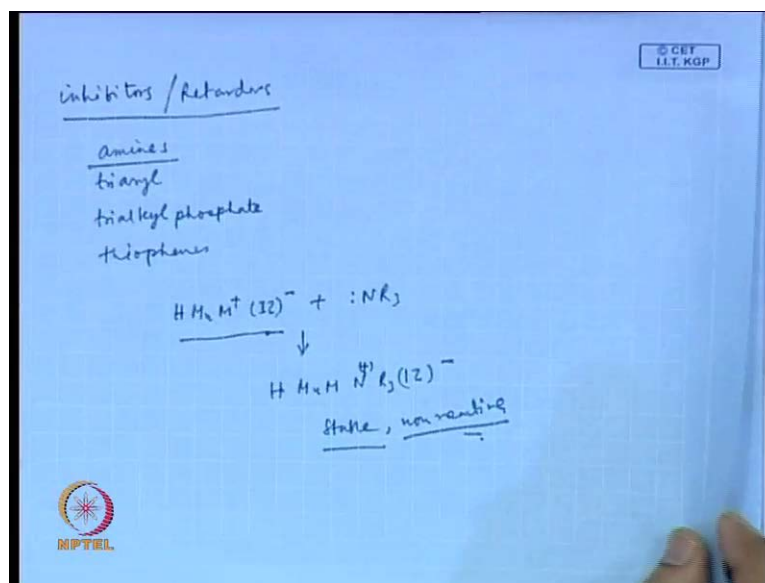 © CET
I.I.T. KGP
inhibitors / Retarders
amines
triaryl
trialkyl phosphate
thiophenes
HMₙM⁺(IZ)⁻ + :NR₃
↓
HMₙM N⁽⁺⁾R₃(IZ)⁻
stable, nonreactive
NPTEL